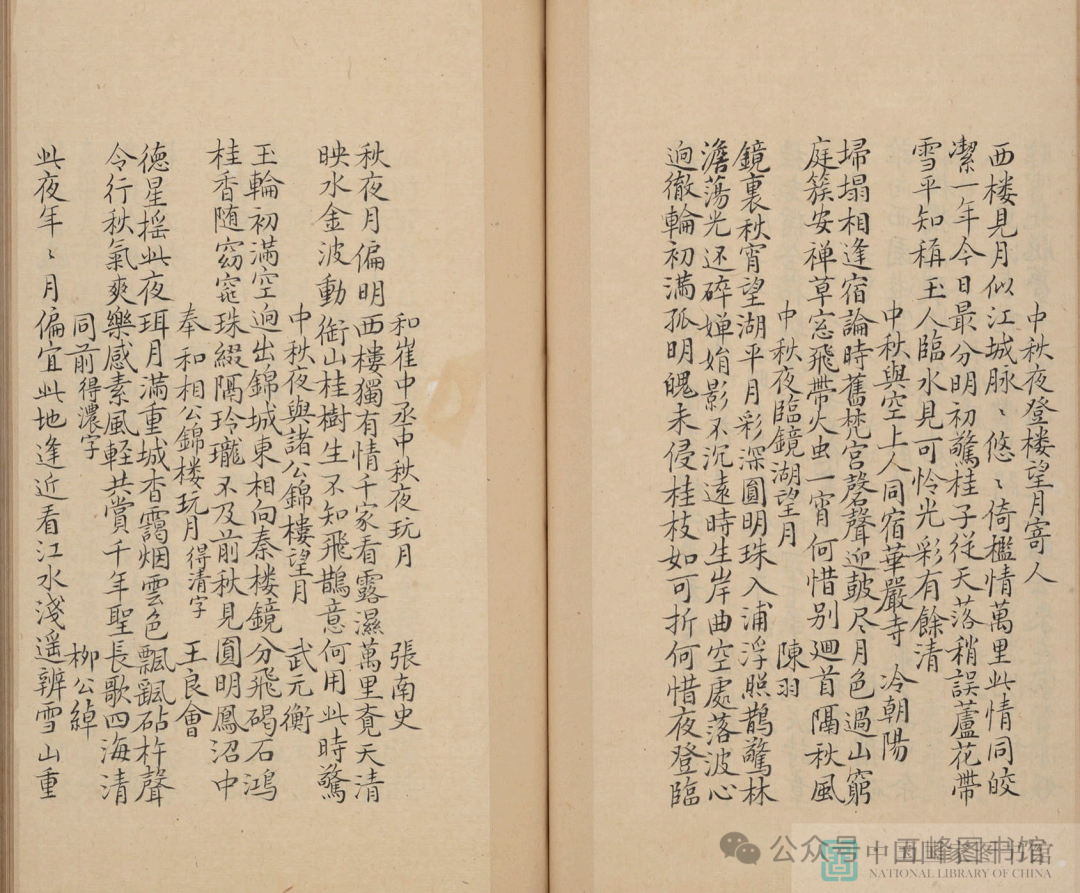 中秋夜登楼望月寄人
西楼見月似江城脉〻悠〻倚檻情萬里此情同皎
潔一年今日最分明初驚桂子從天落稍誤蘆花帶
雪平知稱玉人臨水見可怜光彩有餘清
中秋與空上人同宿華嚴寺 冷朝陽
埽塌相逢宿論時舊梵宫磬聲迎鼓尽月色過山窮
庭簇安禅草窓飛帶火虫一宵何惜别廻首隔秋風
中秋夜臨鏡湖望月 陳羽
鏡裏秋宵望湖平月彩深圓明珠入浦浮照鵲驚林
澹蕩光还碎婵娟影不沉遠時生岸曲空處落波心
逈徹輪初滿孤明魄未侵桂枝如可折何惜夜登臨
和崔中丞中秋夜玩月 張南史
秋夜月偏明西樓獨有情千家看露濕萬里覺天清
映水金波動銜山桂樹生不知飛鵲意何用此時驚
中秋夜與諸公錦樓望月 武元衡
玉輪初滿空逈出錦城東相向秦楼鏡分飛碣石鴻
桂香随窈窕珠綴隔玲瓏不及前秋見圓明鳳沼中
奉和相公錦楼玩月得清字 王良會
德星摇此夜珥月滿重城杳靄烟雲色飄飖砧杵聲
令行秋氣爽樂感素風軽共賞千年聖長歌四海清
同前得濃字 柳公綽
此夜年〻月偏宜此地逢近看江水淺遥辨雪山重
公众号
NATIONAL LIBRARY OF CHINA